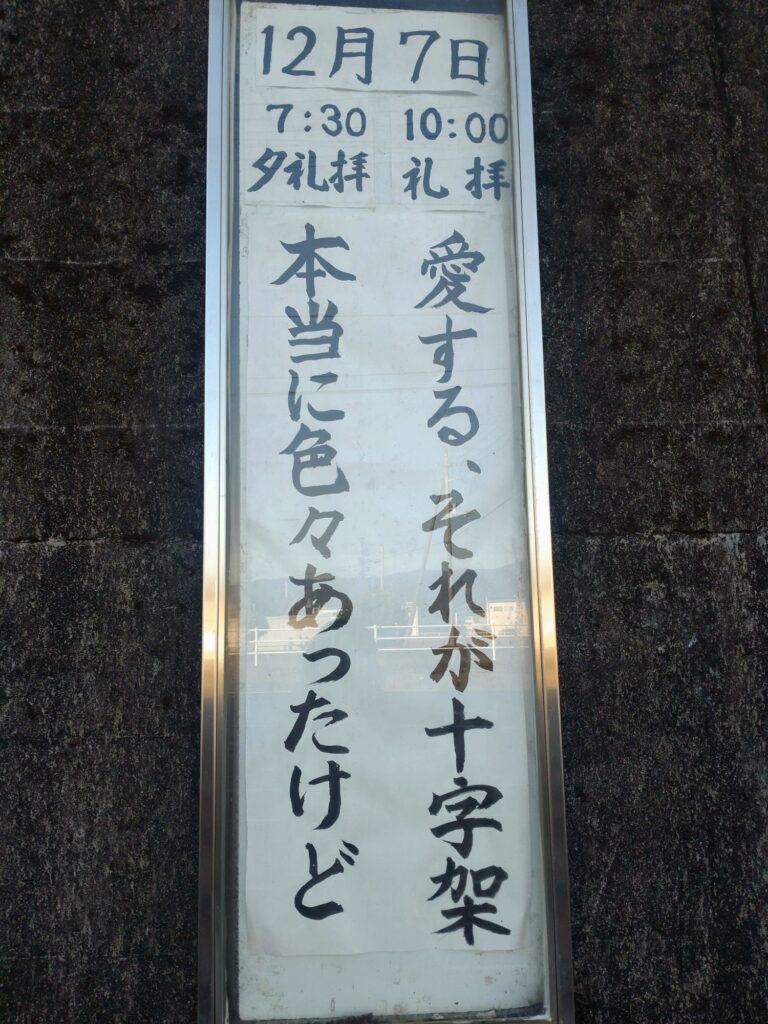 12月7日
10:00
礼拝
7:30
夕礼拝
愛する、それが十字架
本当に色々あったけど